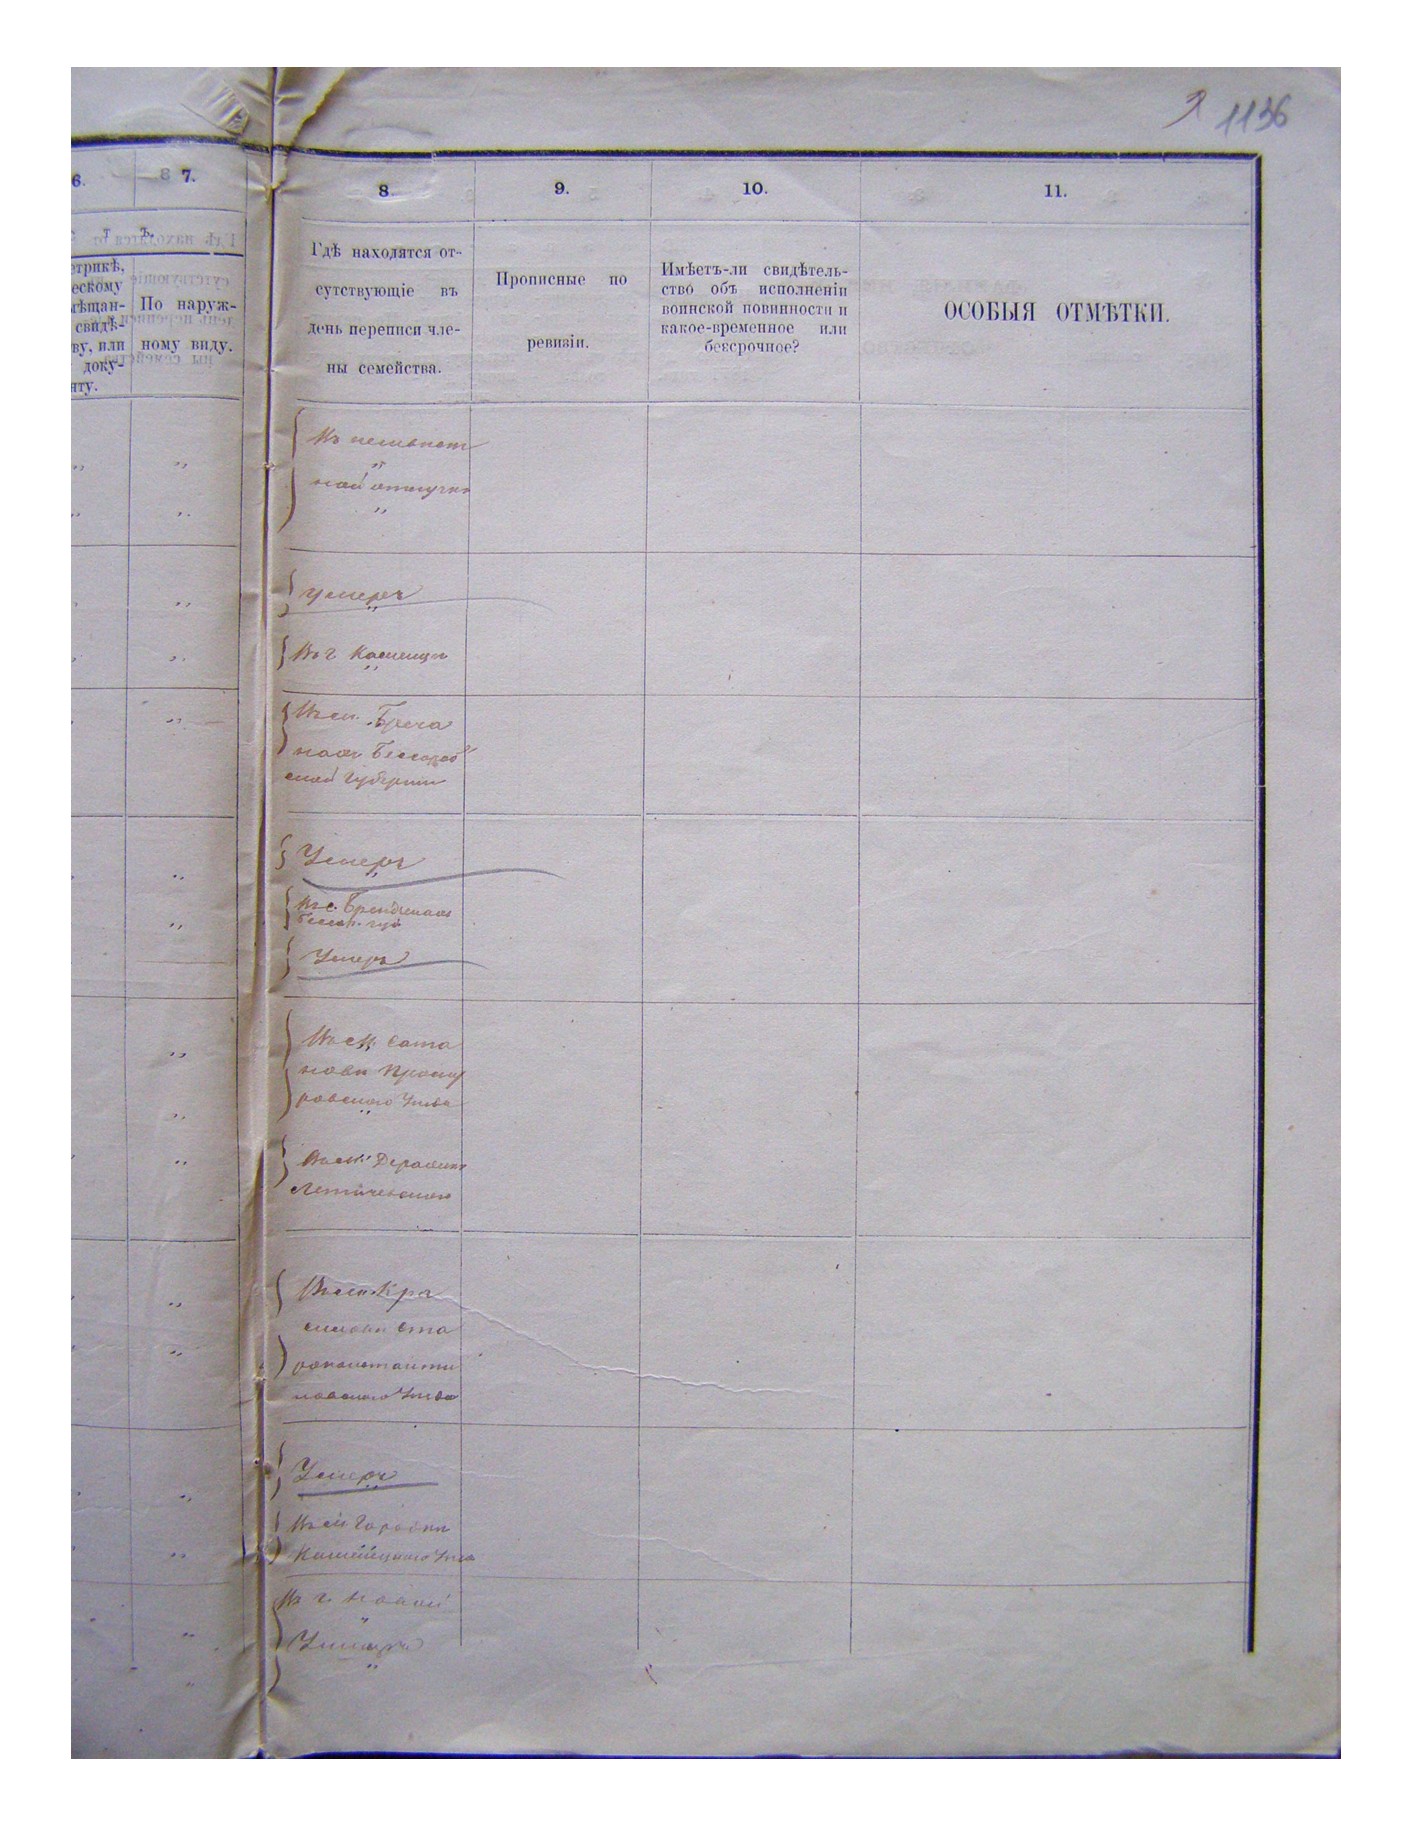 1136
6.
7.
8
9.
10.
11.
с т ъ.
етрикѣ,
ескому
ѣщан-
свидѣ-
ву, или
доку-
нту.
По наруж-
ному виду.
Гдѣ находятся от-
сутствующіе въ
день переписи чле-
ны семейства.
Прописные по
ревизіи.
Имѣетъ-ли свидѣтель-
ство объ исполненіи
воинской повинности и
какое-временное или
безсрочное?
ОСОБЫЯ ОТМѢТКИ.
Въ
ной отлучкѣ
умеръ
Въ г. Каменцѣ
Бессараб
ской Губерніи
Умеръ
Бессар. губ.
Умеръ
Въ м. Сата
новѣ Проску
ровскаго Уѣзда
Въ м. Деражнѣ
Летичевскаго
Въ м. Кра
силовѣ Ста
роконстанти
новскаго Уѣзда
Умеръ
Въ м. Городкѣ
Каменецкаго Уѣзда
Умеръ